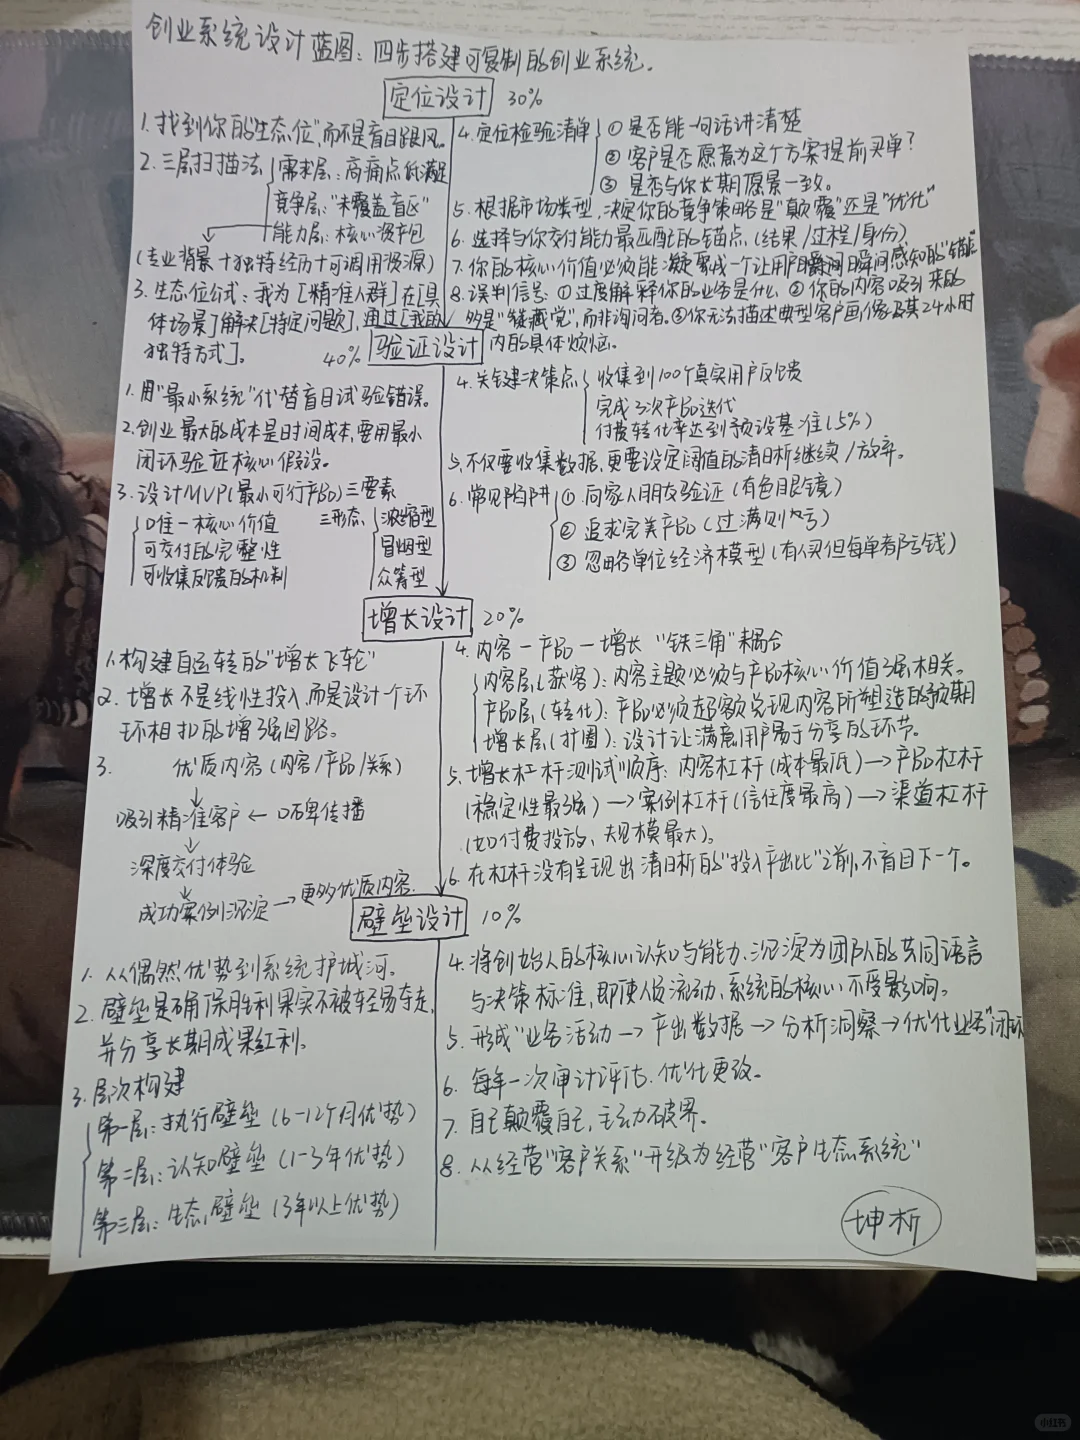 创业系统设计蓝图：四步搭建可复制的创业系统。
定位设计 30%
1.找到你的"生态位",而不是盲目跟风。
2.三层扫描法
需求层：高痛点低满足
竞争层："未覆盖盲区"
能力层：核心资产包
(专业背景+独特经历+可调用资源)
3.生态位公式：我为[精准人群]在[具
体场景]解决[特定问题],通过[我的
独特方式]。
4.定位检验清单
①是否能一句话讲清楚
②客户是否愿意为这个方案提前买单？
③是否与你长期愿景一致。
5.根据市场类型,决定你的竞争策略是"颠覆"还是"优化"
6.选择与你交付能力最匹配的锚点(结果/过程/身份)
7.你的核心价值必须能凝聚成一个让用户瞬间感知的"锚点"
8.误判信号：①过度解释你的业务是什么 ②你的内容吸引来的
多是"收藏党",而非询问者。③你无法描述典型客户画像及其24小时
内的具体烦恼。
40% 验证设计
1.用"最小系统"代替盲目试验错误。
2.创业最大的成本是时间成本,要用最小
闭环验证核心假设。
3.设计MVP(最小可行产品)三要素
唯一核心价值
可交付的完整性
可收集反馈的机制
三形态
浓缩型
冒烟型
众筹型
4.关键决策点
收集到100个真实用户反馈
完成3次产品迭代
付费转化率达到预设基准(5%)
5.不仅要收集数据,更要设定阈值的清晰继续/放弃。
6.常见陷阱
①向家人朋友验证(有色眼镜)
②追求完美产品(过满则亏)
③忽略单位经济模型(有人买但每单都亏钱)
增长设计 20%
1.构建自运转的"增长飞轮"
2.增长不是线性投入而是设计一个环
环相扣的增强回路。
3. 优质内容(内容/产品/关系)
吸引精准客户←口碑传播
深度交付体验
成功案例沉淀→更多优质内容.
4.内容—产品—增长 "铁三角"耦合
内容层(获客)：内容主题必须与产品核心价值强相关。
产品层(转化)：产品必须超额兑现内容所塑造的预期
增长层(扩圈)：设计让满意用户易于分享的环节。
5.增长杠杆测试顺序：内容杠杆(成本最低)→产品杠杆
(稳定性最强)→案例杠杆(信任度最高)→渠道杠杆
(如付费投放、规模最大)。
6.在杠杆没有呈现出清晰的"投入产出比"之前,不盲目下一个。
壁垒设计 10%
1.从偶然优势到系统护城河。
2.壁垒是确保胜利果实不被轻易夺走,
并分享长期成果红利。
3.层次构建
第一层：执行壁垒(6-12个月优势)
第二层：认知壁垒(1-3年优势)
第三层：生态壁垒(3年以上优势)
4.将创始人的核心认知与能力、沉淀为团队的共同语言
与决策标准,即使人员流动、系统的核心不受影响。
5.形成"业务活动→产出数据→分析洞察→优化业务"闭环
6.每年一次审计评估、优化更改。
7.自己颠覆自己,主动破界。
8.从经营"客户关系"升级为经营"客户生态系统"
坤析
小红书